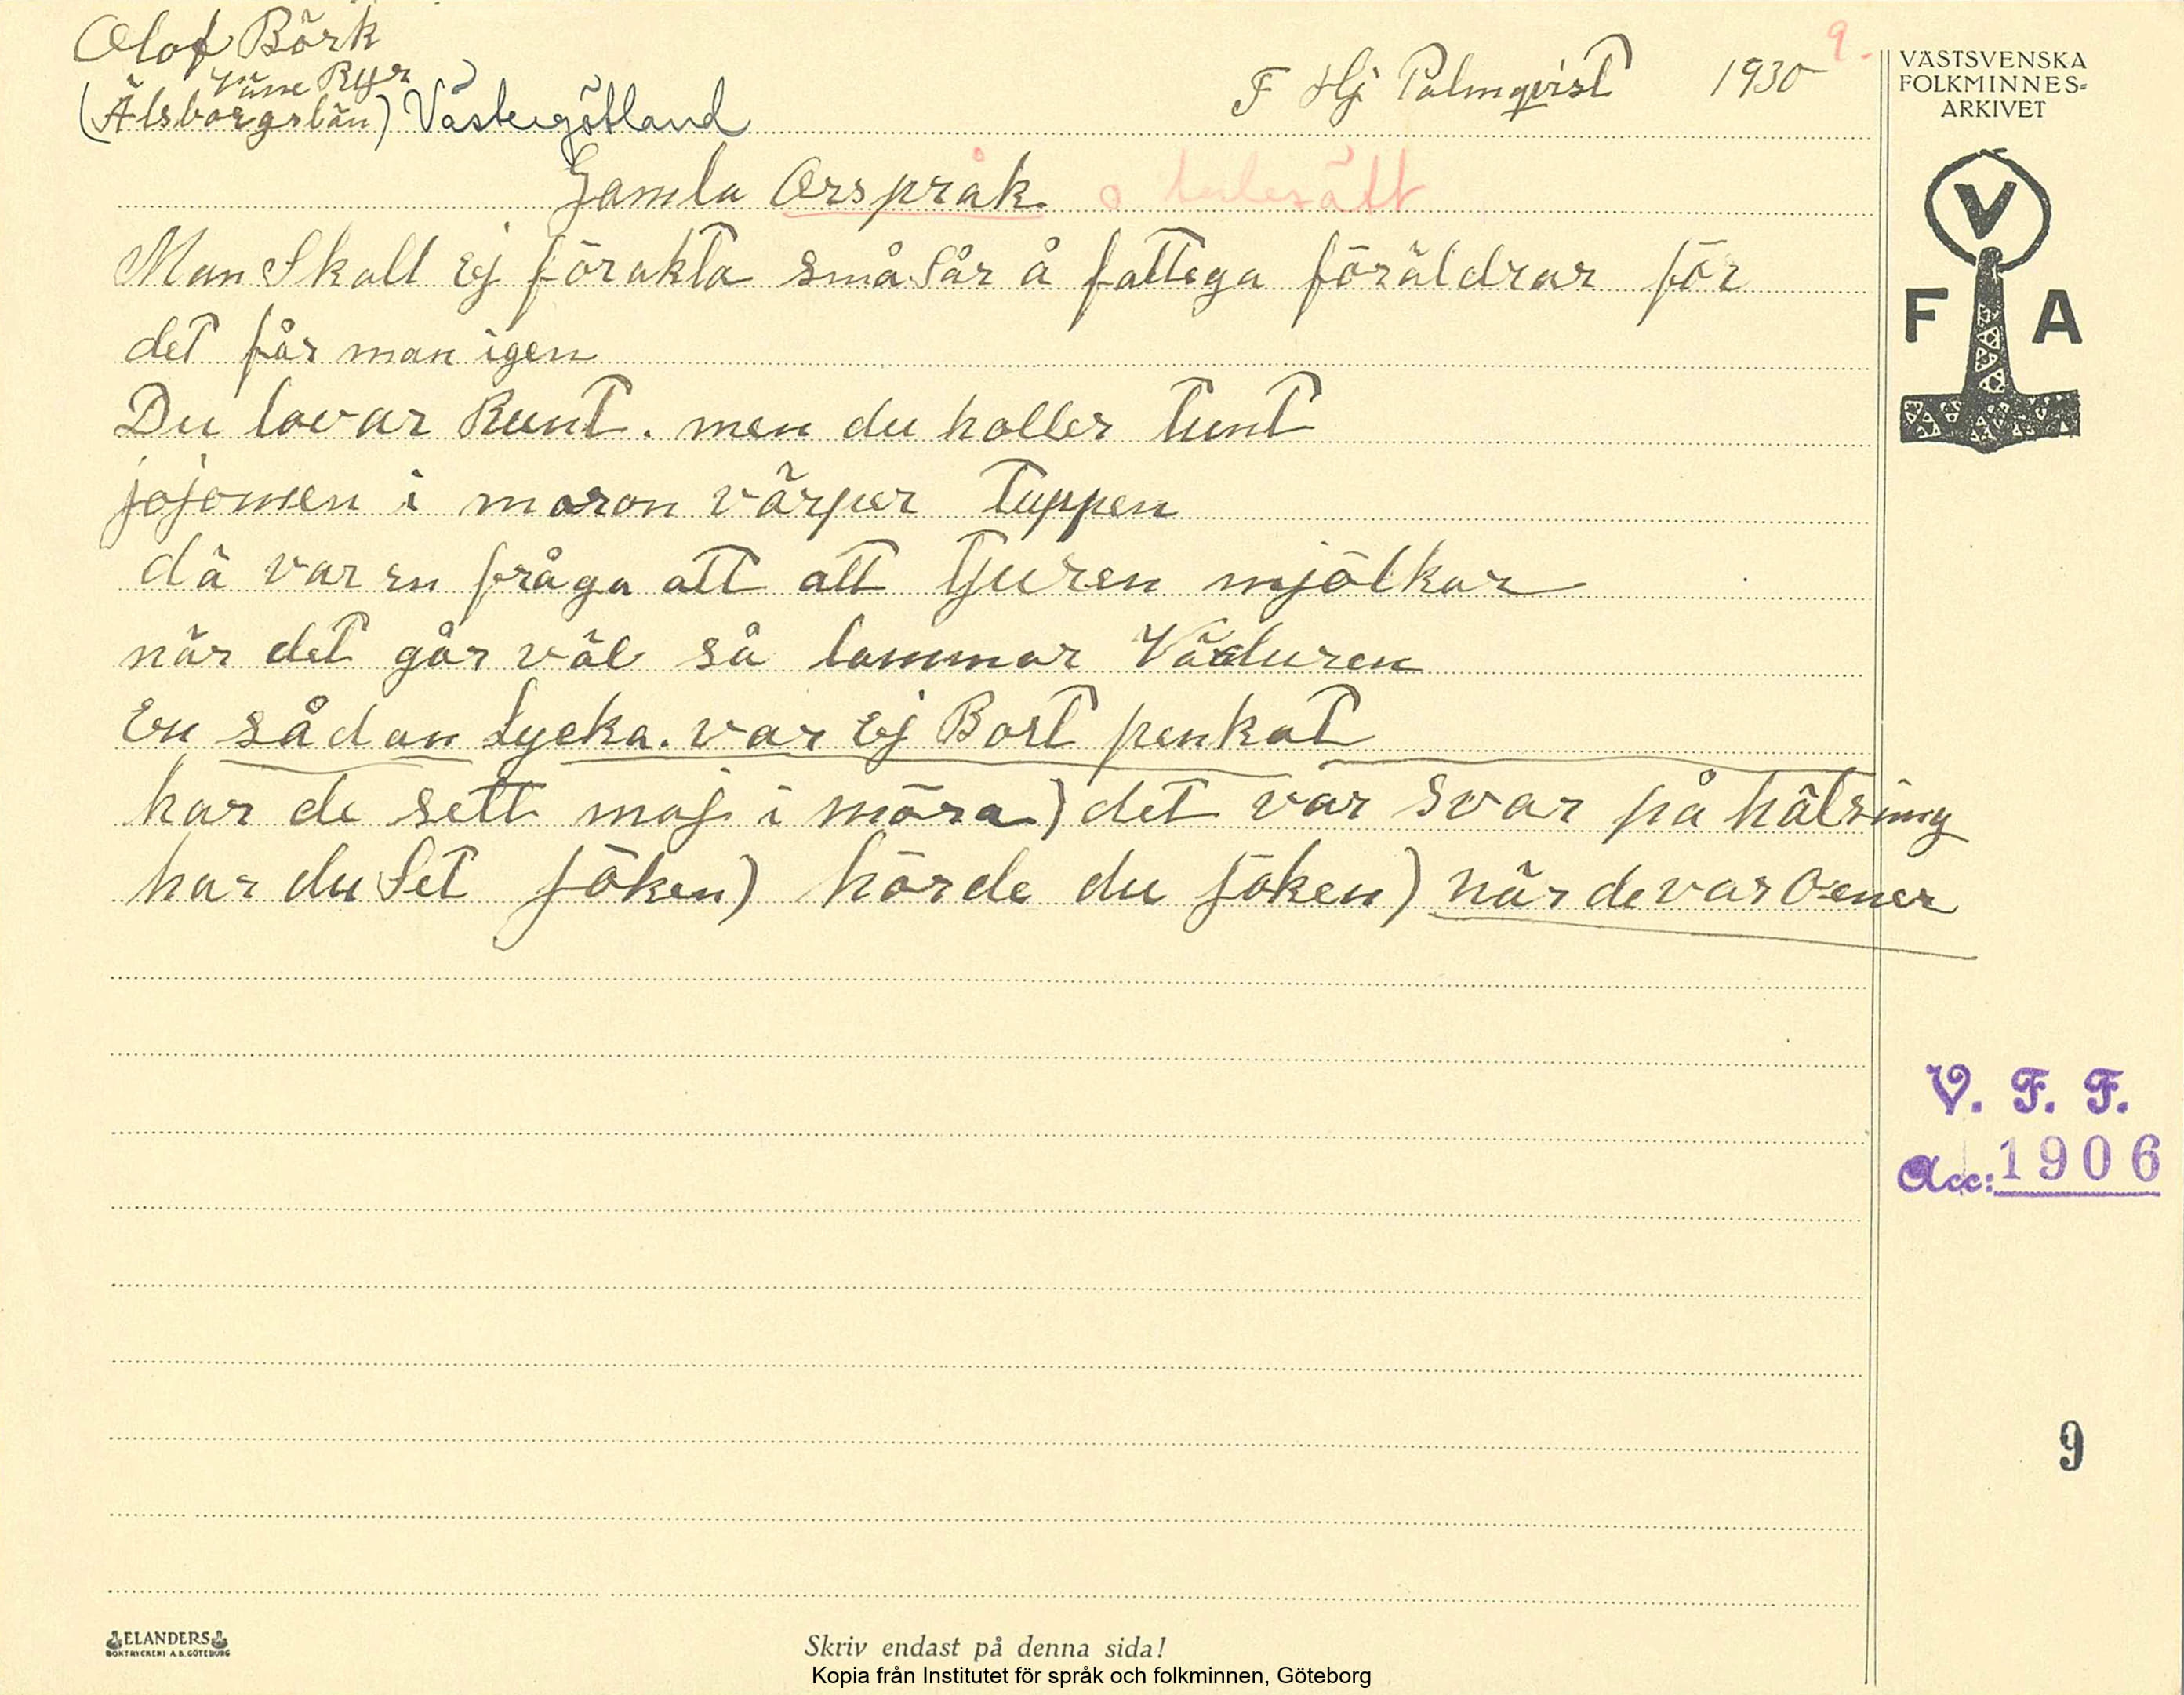 Olof Börk
Väne Ryr
(Älsborgslän) Västergötland
F Hj Palmqvist 1930
9.
VÄSTSVENSKA
FOLKMINNES-
ARKIVET
V
F A
Gamla Orspråk o talesätt
Man Skall Ej förakta små Sår å fattega föräldrar för
det får man igen
Du lovar Runt. men du holler tunt
jojomen i moron värper tuppen
dä var en fråga att att tjuren mjölkar
när det går väl så lammar Väduren
En sådan Lycka. var Ej Bort penkat
har de sett maj i möra) det var svar på hälsing
har du Set jöken) hörde du jöken) när de var Oener
V. F. F.
Acc: 1906
9
ELANDERS
BOKTRYCKERI A.B. GÖTEBORG
Skriv endast på denna sida!
Kopia från Institutet för språk och folkminnen, Göteborg